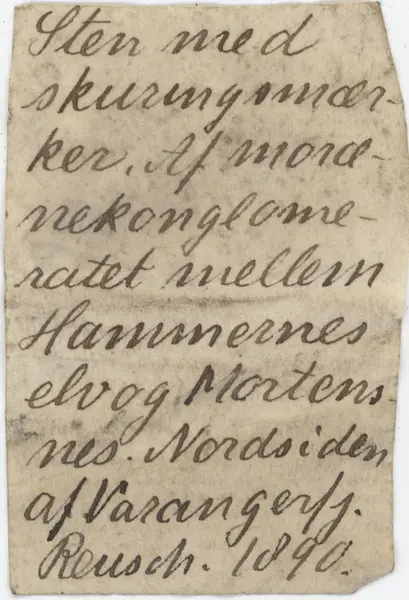 Sten med
skuringsmær-
ker. Af moræ-
nekonglome-
ratet mellem
Hammernes
elv og Mortens-
nes. Nordsiden
af Varangerfj.
Reusch. 1890.